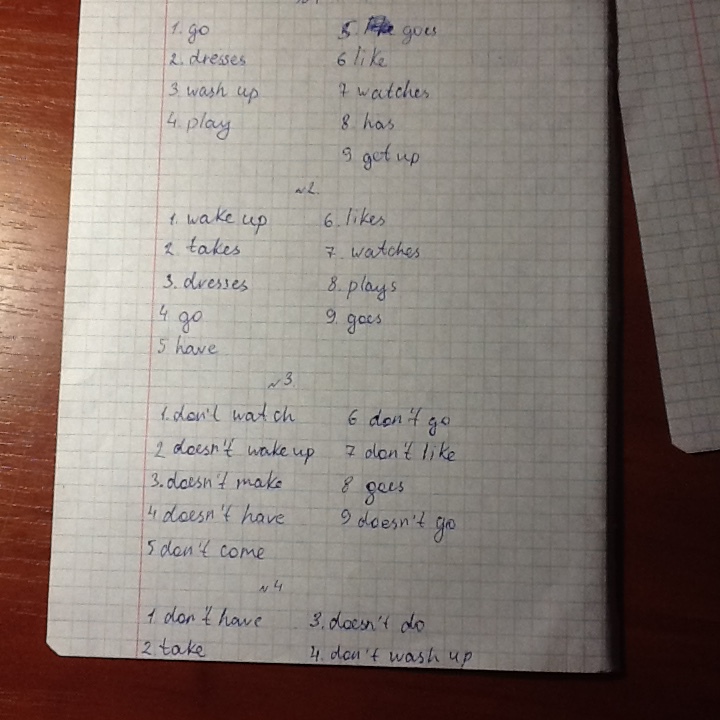 1. go 5. goes
2. dresses 6 like
3. wash up 7 watches
4. play 8. has
9 get up
№2.
1. wake up 6. likes
2. takes 7. watches
3. dresses 8. plays
4 go 9. goes
5 have
№3.
1. don't watch 6 don't go
2 doesn't wake up 7 don't like
3. doesn't make 8 goes
4 doesn't have 9 doesn't go
5 don't come
№4
1. don't have 3. doesn't do
2. take 4. don't wash up